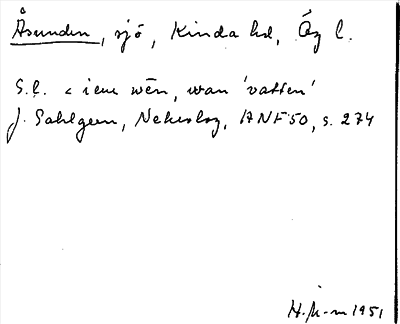 Åsunden, sjö, Kinda hd, Ög l.
S.l. < ieur wēn, wan 'vatten'
J. Sahlgren, Nekrolog, ANF 50, s. 274
H. M-m 1951